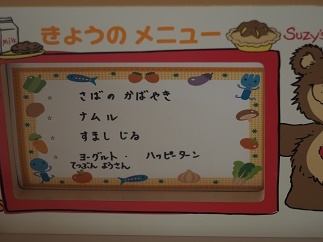 milk
きょうの メニュー
Suzy's
さばの かばやき
ナムル
すまし じる
ヨーグルト・ ハッピーターン
てつぶん ようさん